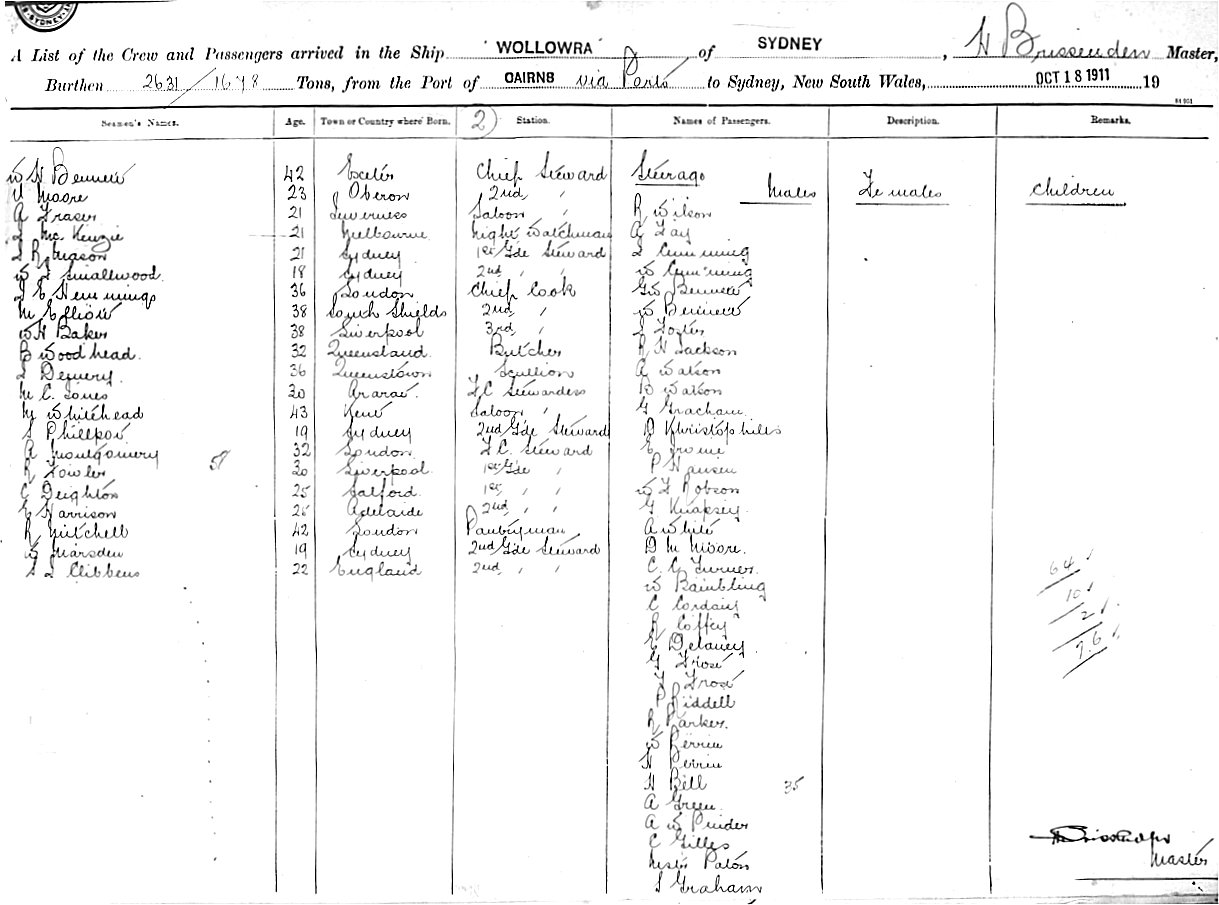 SYDNEY
A List of the Crew and Passengers arrived in the Ship WOLLOWRA of SYDNEY, H Brissenden Master,
Burthen 2631/1678 Tons, from the Port of CAIRNS via Ports to Sydney, New South Wales, OCT 18 1911 19
Seamen's Names. Age. Town or Country where Born. 2) Station. Names of Passengers. Description. Remarks.
W H Bennett 42 Exeter Chief Steward Steerage Males Females Children
Moore 23 Oberon 2nd, ,
A Fraser 21 Inverness Saloon , R Wilson
Mc Kenzie 21 Melbourne Night Watchman A Fay
R Mason 21 Sydney 1st Gde Steward Cumming
W Smallwood 18 Sydney 2nd , , W Cumming
E Hemmings 36 London Chief Cook Bennett
M Elliott 38 South Shields 2nd, , W Bennett
W H Baker 38 Liverpool 3rd, , Foster
B Woodhead. 32 Queensland. Butcher R H Jackson
Demery 36 Queenstown Scullion A Watson
M C. Jones 30 Ararat F C Stewardess B Watson
M Whitehead 43 Kent Saloon , G Gracham.
S Phillpot 19 Sydney 2nd Gde Steward D Khristophides
A Montgomery 32 London F. C. Steward E Irvine
R Fowler 51 30 Liverpool 1st Gde , P Hansen
C Deighton 25 Salford. 1st, , W F Robson
E Harrison 25 Adelaide 2nd, , G Knapsey
R Mitchell 42 London Pantryman A White
W Marsden 19 Sydney 2nd Gde Steward D M Moore.
Clibbens 22 England 2nd, , , C. C Turner.
64
W Bambling
10
C Cordany
2
R Coffey
76
E Delaney
G Frost
F Frost
P Riddell
R Parker.
W Perrin
H Perrin
H Bell 35
A Green.
A W Pinder
C Gilles
Master
Paton
S Graham